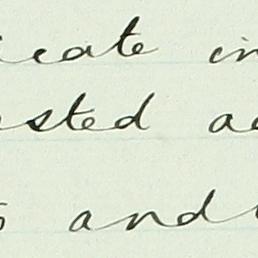 icate in
ested ac
s and